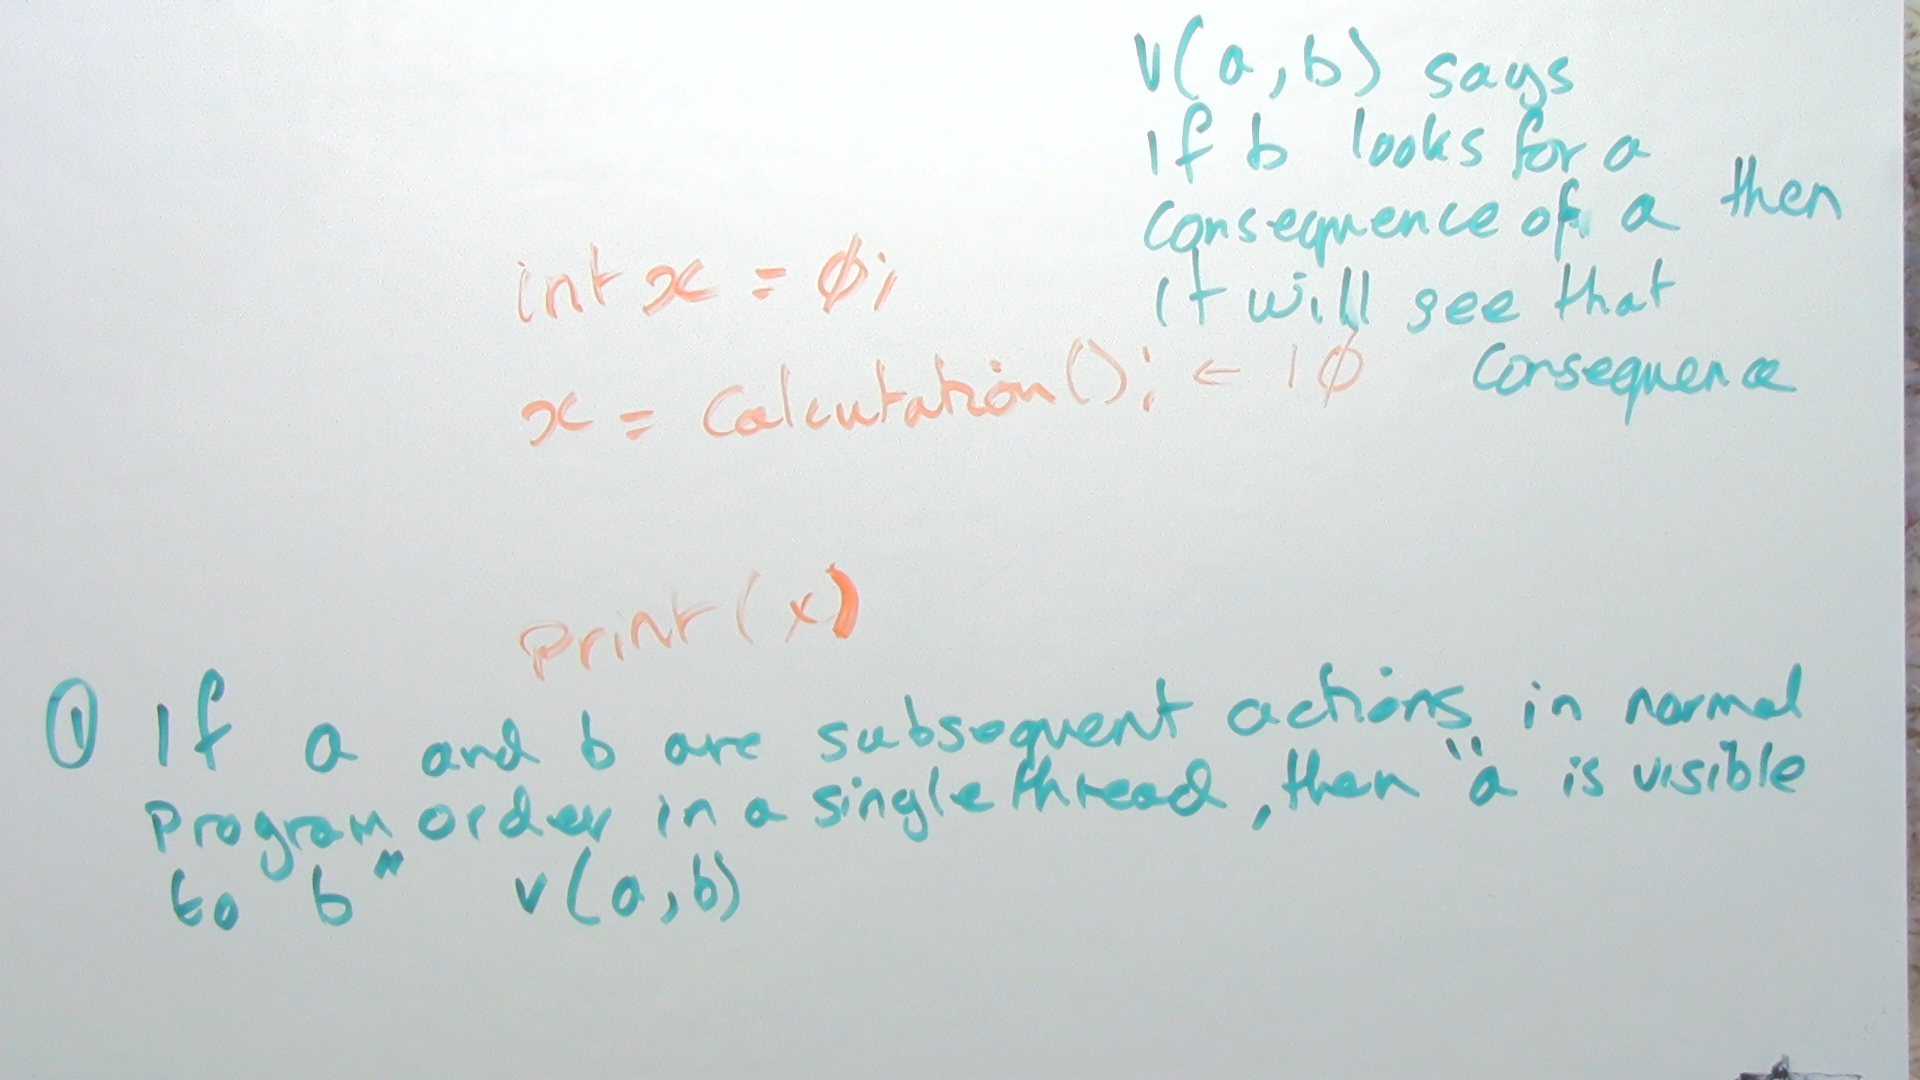 v(a,b) says
If b looks for a
consequence of a then
it will see that
consequence
int x = 0;
x = Calculation(); ← 10
print(x)
① If a and b are subsequent actions in normal
program order in a single thread, then "a is visible
to b" v(a,b)